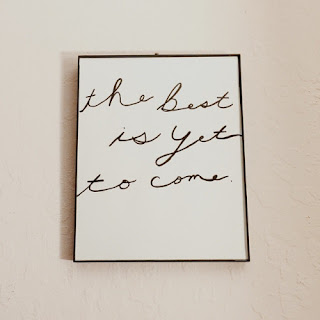 the best
is yet
to come.